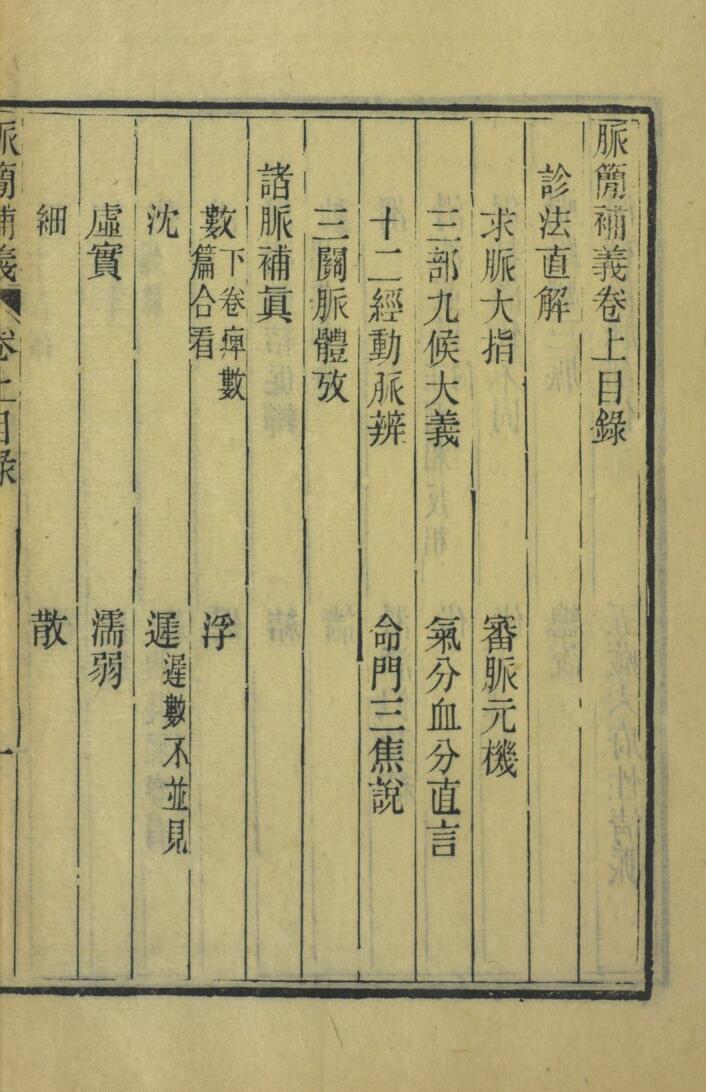 脈簡補義卷上目錄
診法直解
求脈大指　審脈元機
三部九候大義　氣分血分直言
十二經動脈辨　命門三焦說
三關脈體攷
諸脈補眞
數下卷痺數篇合看　浮
沈　遲遲數不並見
虛實　濡弱
細　散
脈簡補義　卷上目錄　一